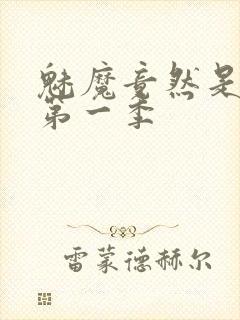 魅魔竟然是
第一季
雷蒙德赫尔